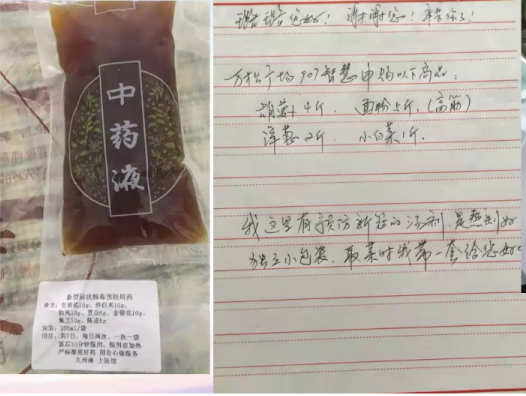 中药液
新型冠状病毒预防用药
生黄芪10g、炒白术10g、
防风10g、贯众6g、金银花10g、
佩兰10g、陈皮6g
包装：200ml/袋
用法：共7日，每日两次，一次一袋
饭后30分钟服用，服用前加热
严标准煎好药 用良心做服务
您好！谢谢您！辛苦了！
万松广场907智慧申购以下商品：
胡萝卜4斤、面粉5斤、(高筋)
洋葱2斤、小白菜1斤.
我这里有预防新冠的汤剂，是煎制好
独立小包装、取菜时我带一套给您